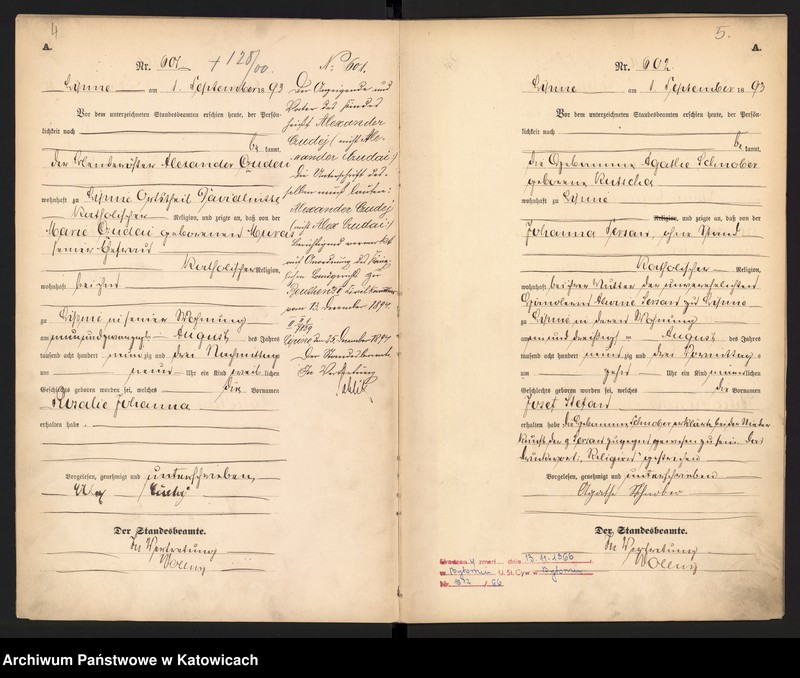 4
A.
Nr. 601
+ 128/00.
Lipine am 1. September 1893
Vor dem unterzeichneten Standesbeamten erschien heute, der Persön-
lichkeit nach
be kannt,
der Alexander Czudai
wohnhaft zu Lipine Ortstheil
katholischer Religion, und zeigte an, daß von der
Marie Czudai geborenen
seiner Ehefrau
katholischer Religion,
wohnhaft bei ihm
zu Lipine in seiner Wohnung
am neunundzwanzigsten August des Jahres
tausend acht hundert neunzig und drei Nachmittag
um neun Uhr ein Kind weiblichen
Geschlechts geboren worden sei, welches die Vornamen
Rosalie Johanna
erhalten habe.
Vorgelesen, genehmigt und unterschrieben
Alex Czudej
Der Standesbeamte.
In Vertretung
Woleny
No. 601.
Der Anzeigende und
Vater des Kindes
heißt Alexander
Czudej (nicht Ale-
xander Czudai)
Die Unterschrift des-
selben muß lauten:
Alexander Czudej
(nicht Alex Czudai)
Berichtigend vermerkt
auf Anordnung des König-
lichen Landgerichts zu
Beuthen O/S
vom 13. Dezember 1894.
Lipine, den 25. Dezember 1894
Der Standesbeamte
In Vertretung
5.
A.
Nr. 602
Lipine am 1. September 1893
Vor dem unterzeichneten Standesbeamten erschien heute, der Persön-
lichkeit nach
be kannt,
die Hebamme Agathe Schnober
geborene Kutscha
wohnhaft zu Lipine
Religion, und zeigte an, daß von der
Johanna ohne Stand
katholischer Religion,
wohnhaft bei ihrer Mutter der unverehelichten
zu Lipine
zu Lipine in deren Wohnung
am einunddreißigsten August des Jahres
tausend acht hundert neunzig und drei Vormittag
um zehn Uhr ein Kind männlichen
Geschlechts geboren worden sei, welches die Vornamen
Josef Stefan
erhalten habe. Die Hebamme Schnober erklärte bei der Nieder-
kunft der p. zugegen gewesen zu sein. Das
Druckwort "Religion" gestrichen
Vorgelesen, genehmigt und unterschrieben
Agathe Schnober
Der Standesbeamte.
In Vertretung
Woleny
zmarł dnia 13.11.1966
w Bytomiu U.St.Cyw. w Bytomiu
Nr. / 66
Archiwum Państwowe w Katowicach